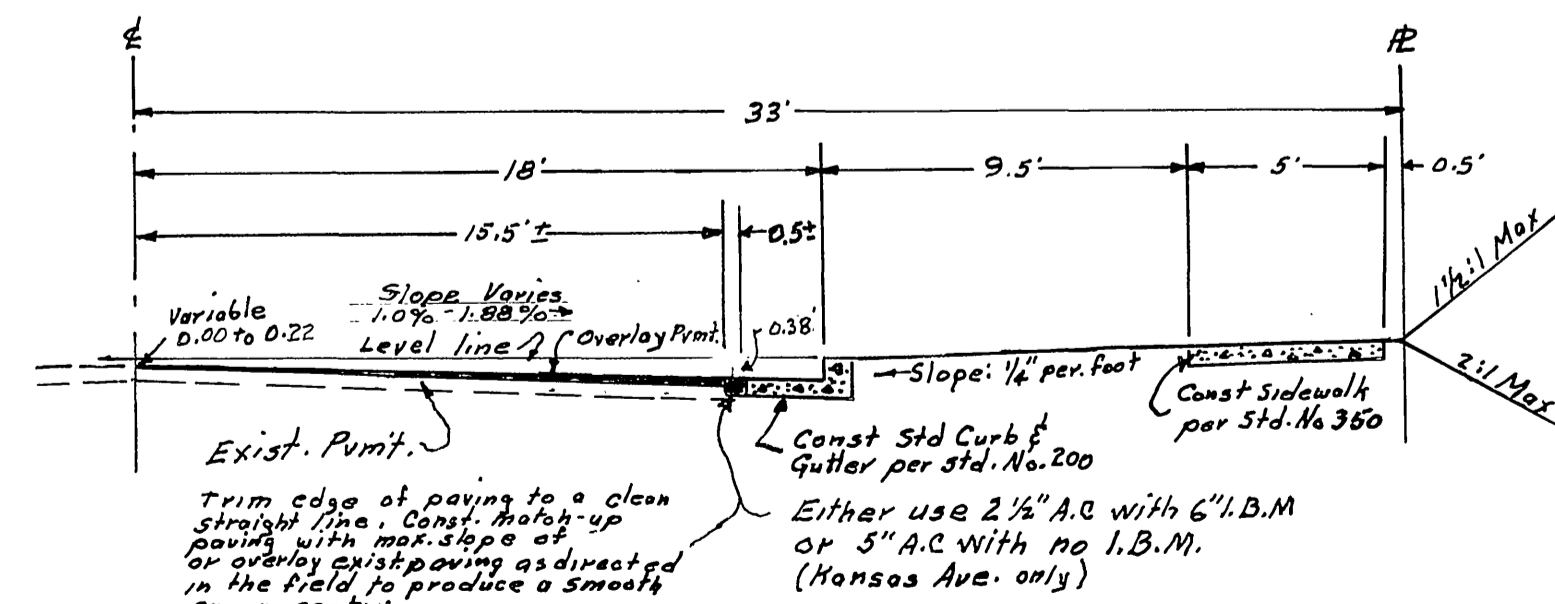 ℄
PL
33'
18'
9.5'
5'
0.5'
15.5' ±
0.5±
1½:1 Max
Variable
0.00 to 0.22
Slope Varies
1.0% - 1.88%
Level line
Overlay Pvmt.
0.38'
Slope: ¼" per. foot
2:1 Max
Const Sidewalk
per Std. No 350
Exist. Pvm't.
Const Std Curb &
Gutter per std. No. 200
Trim edge of paving to a clean
straight line. Const. match-up
paving with max. slope of
or overlay exist. paving as directed
in the field to produce a smooth
Either use 2½" A.C with 6" I.B.M
or 5" A.C with no I.B.M.
(Kansas Ave. only)